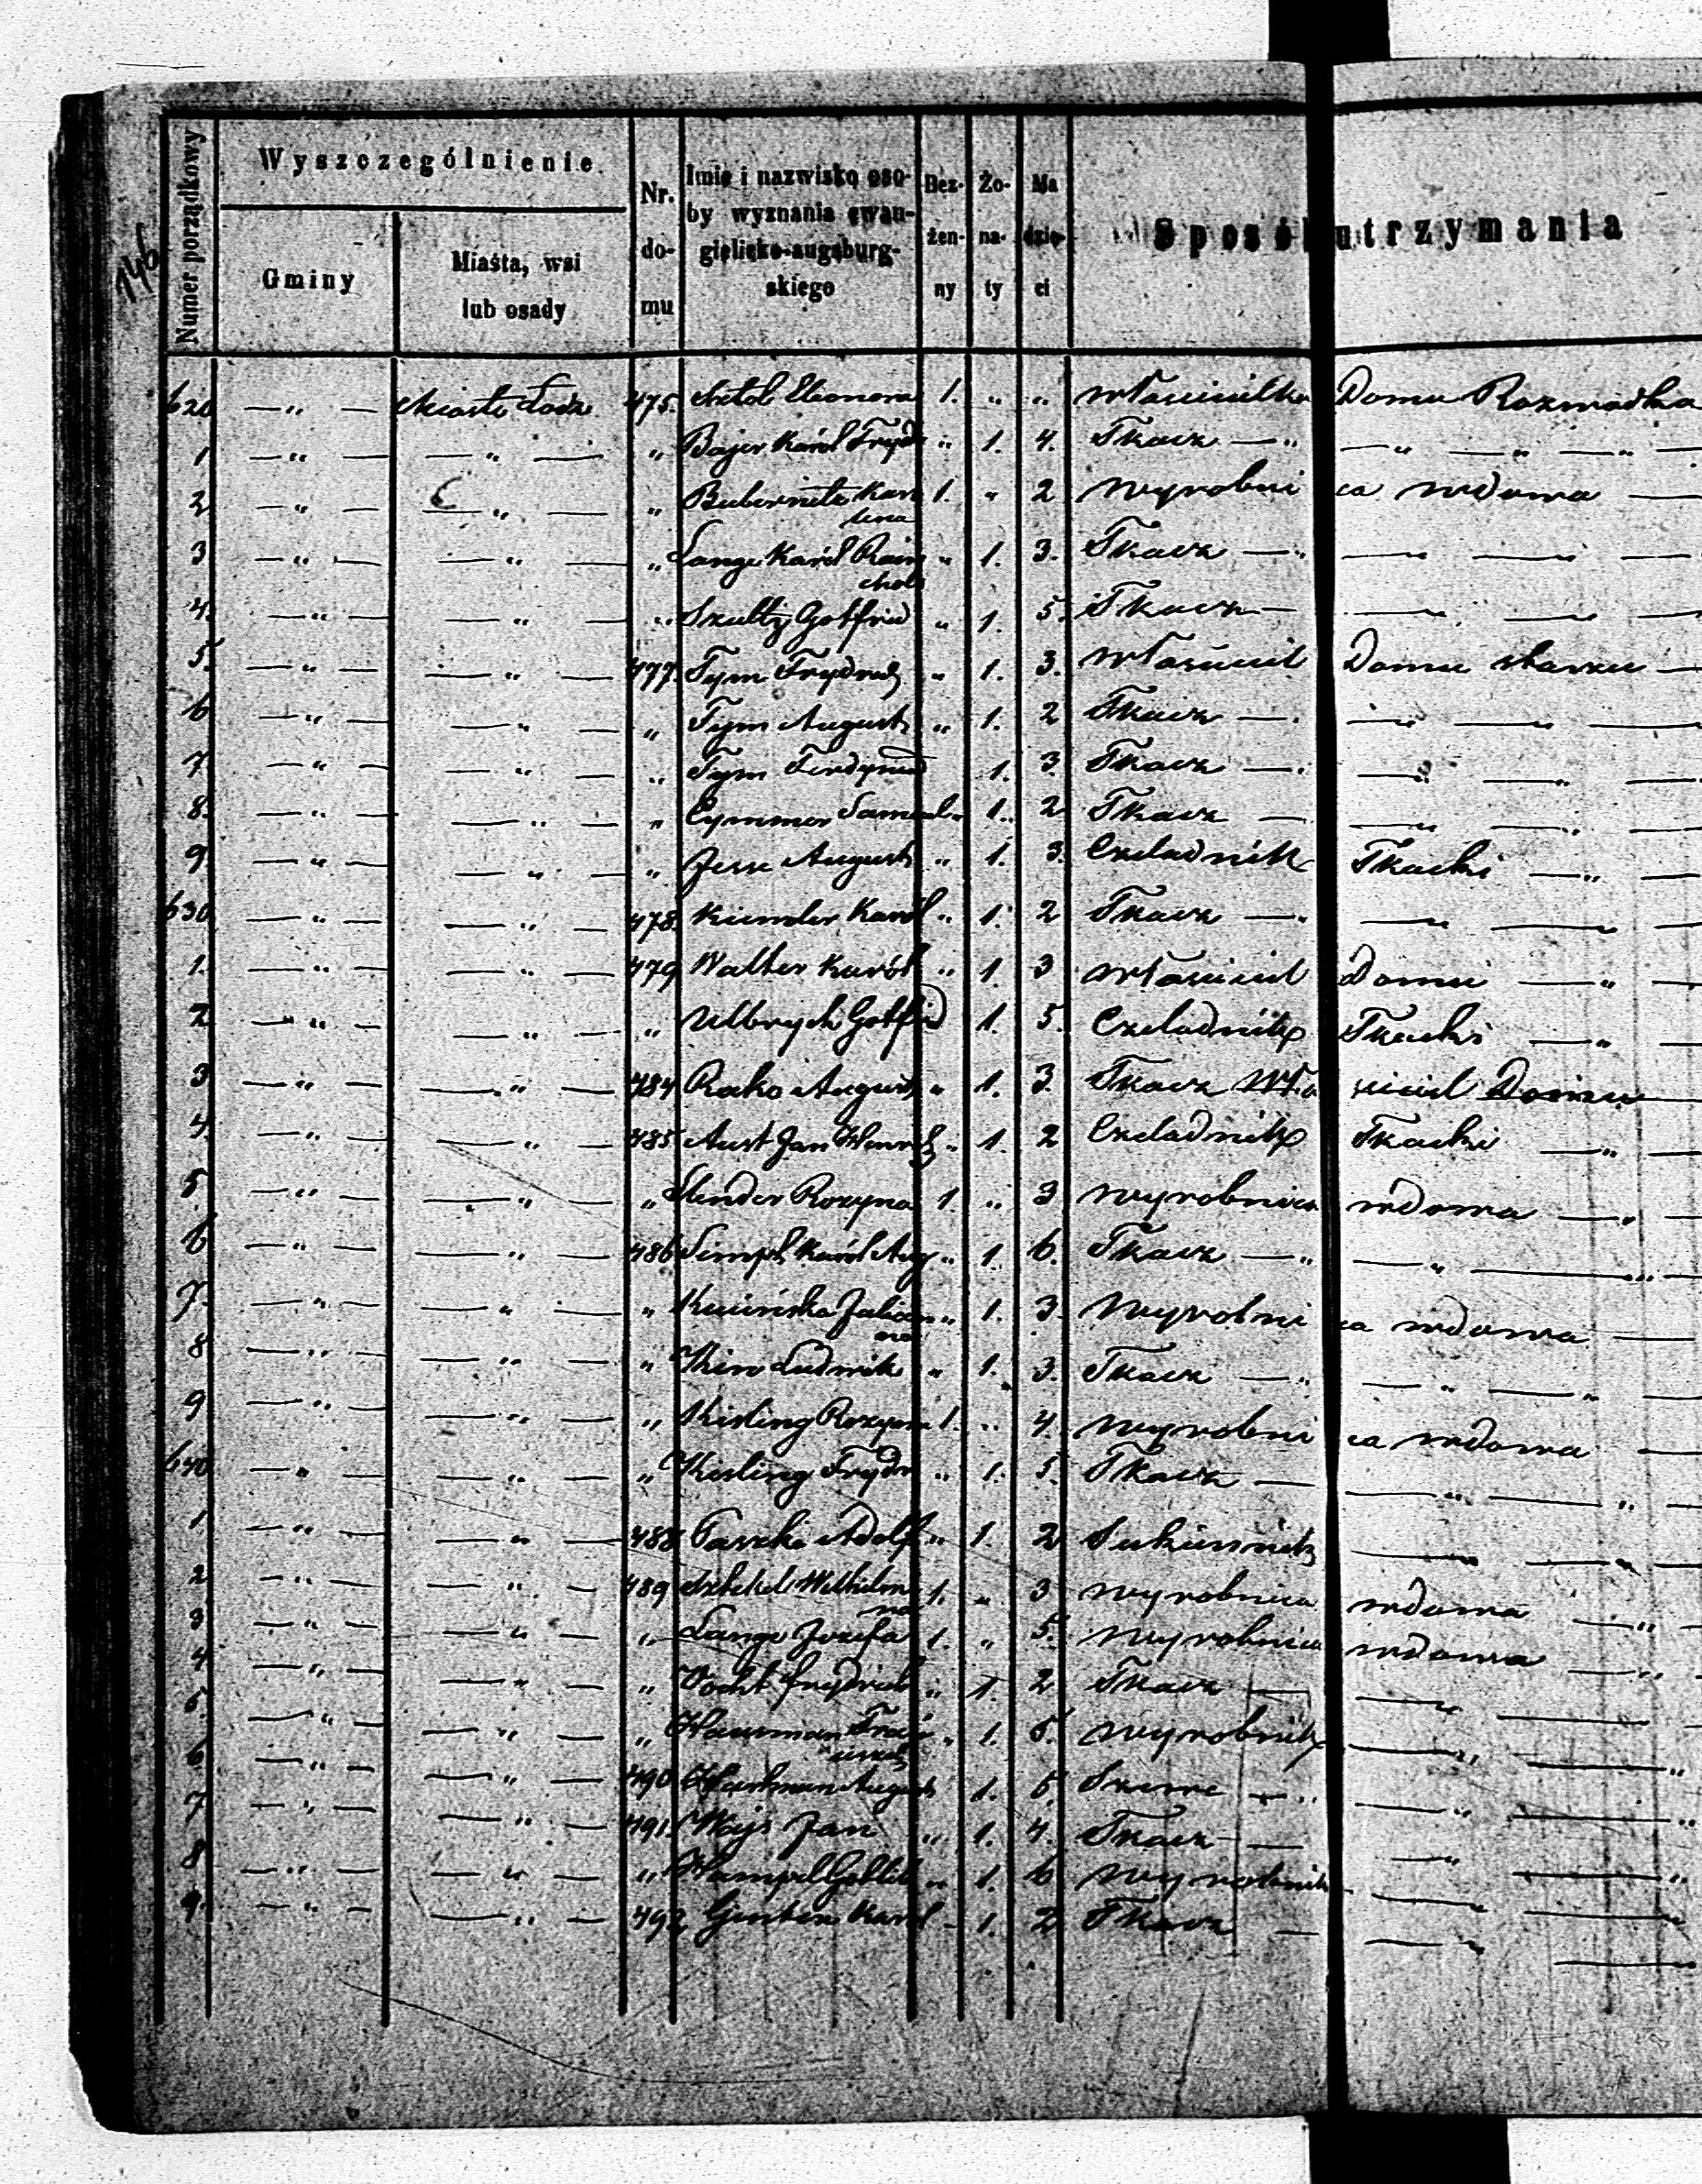 146
Numer porządkowy
Wyszczególnienie
Gminy
Miasta, wsi
lub osady
Nr.
do-
mu
Imie i nazwisko oso-
by wyznania ewan-
gielicko-augsburg-
skiego
Bez-
żen-
ny
Żo-
na-
ty
Ma
dzie-
ci
Sposób utrzymania
620 —„— Miasto Łódź 475. Eleonora 1. „ „ właścicielka Domu Rozwodka
1 —„— —„— „ Bajer Karól Fryd „ 1. 4. Tkacz —„ —„ —„ —„—
2 —„— —„— „ Karo 1. „ 2 wyrobni ca wdowa —
lina
3 —„— —„— „ Lange Karól Rain „ 1. 3. Tkacz —„ — — —
chold
4. —„— —„— „ Szultz Gotfrid „ 1. 5. Tkacz — — — —
5. —„— —„— 477. Tym Frydrich „ 1. 3. właściciel Domu —
6 —„— —„— „ Tym August „ 1. 2 Tkacz —. —„ — —
7 —„— —„— „ Tym Ferdynand 1. 3. Tkacz —. —„ —„ —
8. —„— —„— „ Cymmer Samuel „ 1. 2 Tkacz — —„ —„ —
9 —„— —„— „ Jesse August „ 1. 3. Czeladnik Tkacki —„ —
630 —„— —„— 478. Kiender Karól „ 1. 2 Tkacz —„ — — —
1. —„— —„— 479 Walter Karól „ 1. 3 właściciel Domu —„ —
2 —„— —„— „ Ulbrych Gotfrid 1. 5. Czeladnik Tkacki —„ —
3 —„— —„— 484 Rako August „ 1. 3. Tkacz Właściciel Domu —
4. —„— —„— 485 Aust Jan Henrich „ 1. 2 Czeladnik Tkacki —„ —
5 —„— —„— „ Rozyna 1. „ 3 wyrobnica wdowa —„ —
6 —„— —„— 486 Simpel Karól Aug „ 1. 6. Tkacz —„ —„ —„ —
7. —„— —„— „ Kucińska Julian „ 1. 3. Wyrobni ca wdowa —
na
8 —„— —„— „ Ludwik „ 1. 3. Tkacz —„ —„ —„ —
9 —„— —„— „ Kisling Rozyna 1. „ 4. wyrobni ca wdowa —
640 —„— —„— „ Kisling Frydr „ 1. 5. Tkacz — —„ —„ —
1 —„— —„— 488 Paszke Adolf „ 1. 2 Sukiennik —„ —„ —
2 —„— —„— 489 Wilhelmi 1. „ 3 wyrobnica wdowa —„ —
na
3 —„— —„— „ Lange Jozefa 1. „ 5. wyrobnica wdowa —„ —
4 —„— —„— „ Vocht frydrich „ 1. 2 Tkacz — —„ — —
5. —„— —„— „ Hausman Fran „ 1. 5. wyrobnik —„ —„
ciszek
6 —„— —„— 490 Hartman August 1. 5. Szewc —„ —„ —„
7 —„— —„— 491. Wajs Jan „ 1. 4. Tkacz — —„ —„
8 —„— —„— „ Hampel Gotlib „ 1. 6 wyrobnik — —
9. —„— —„— 492 Karól — 1. 2 Tkacz — —„ —